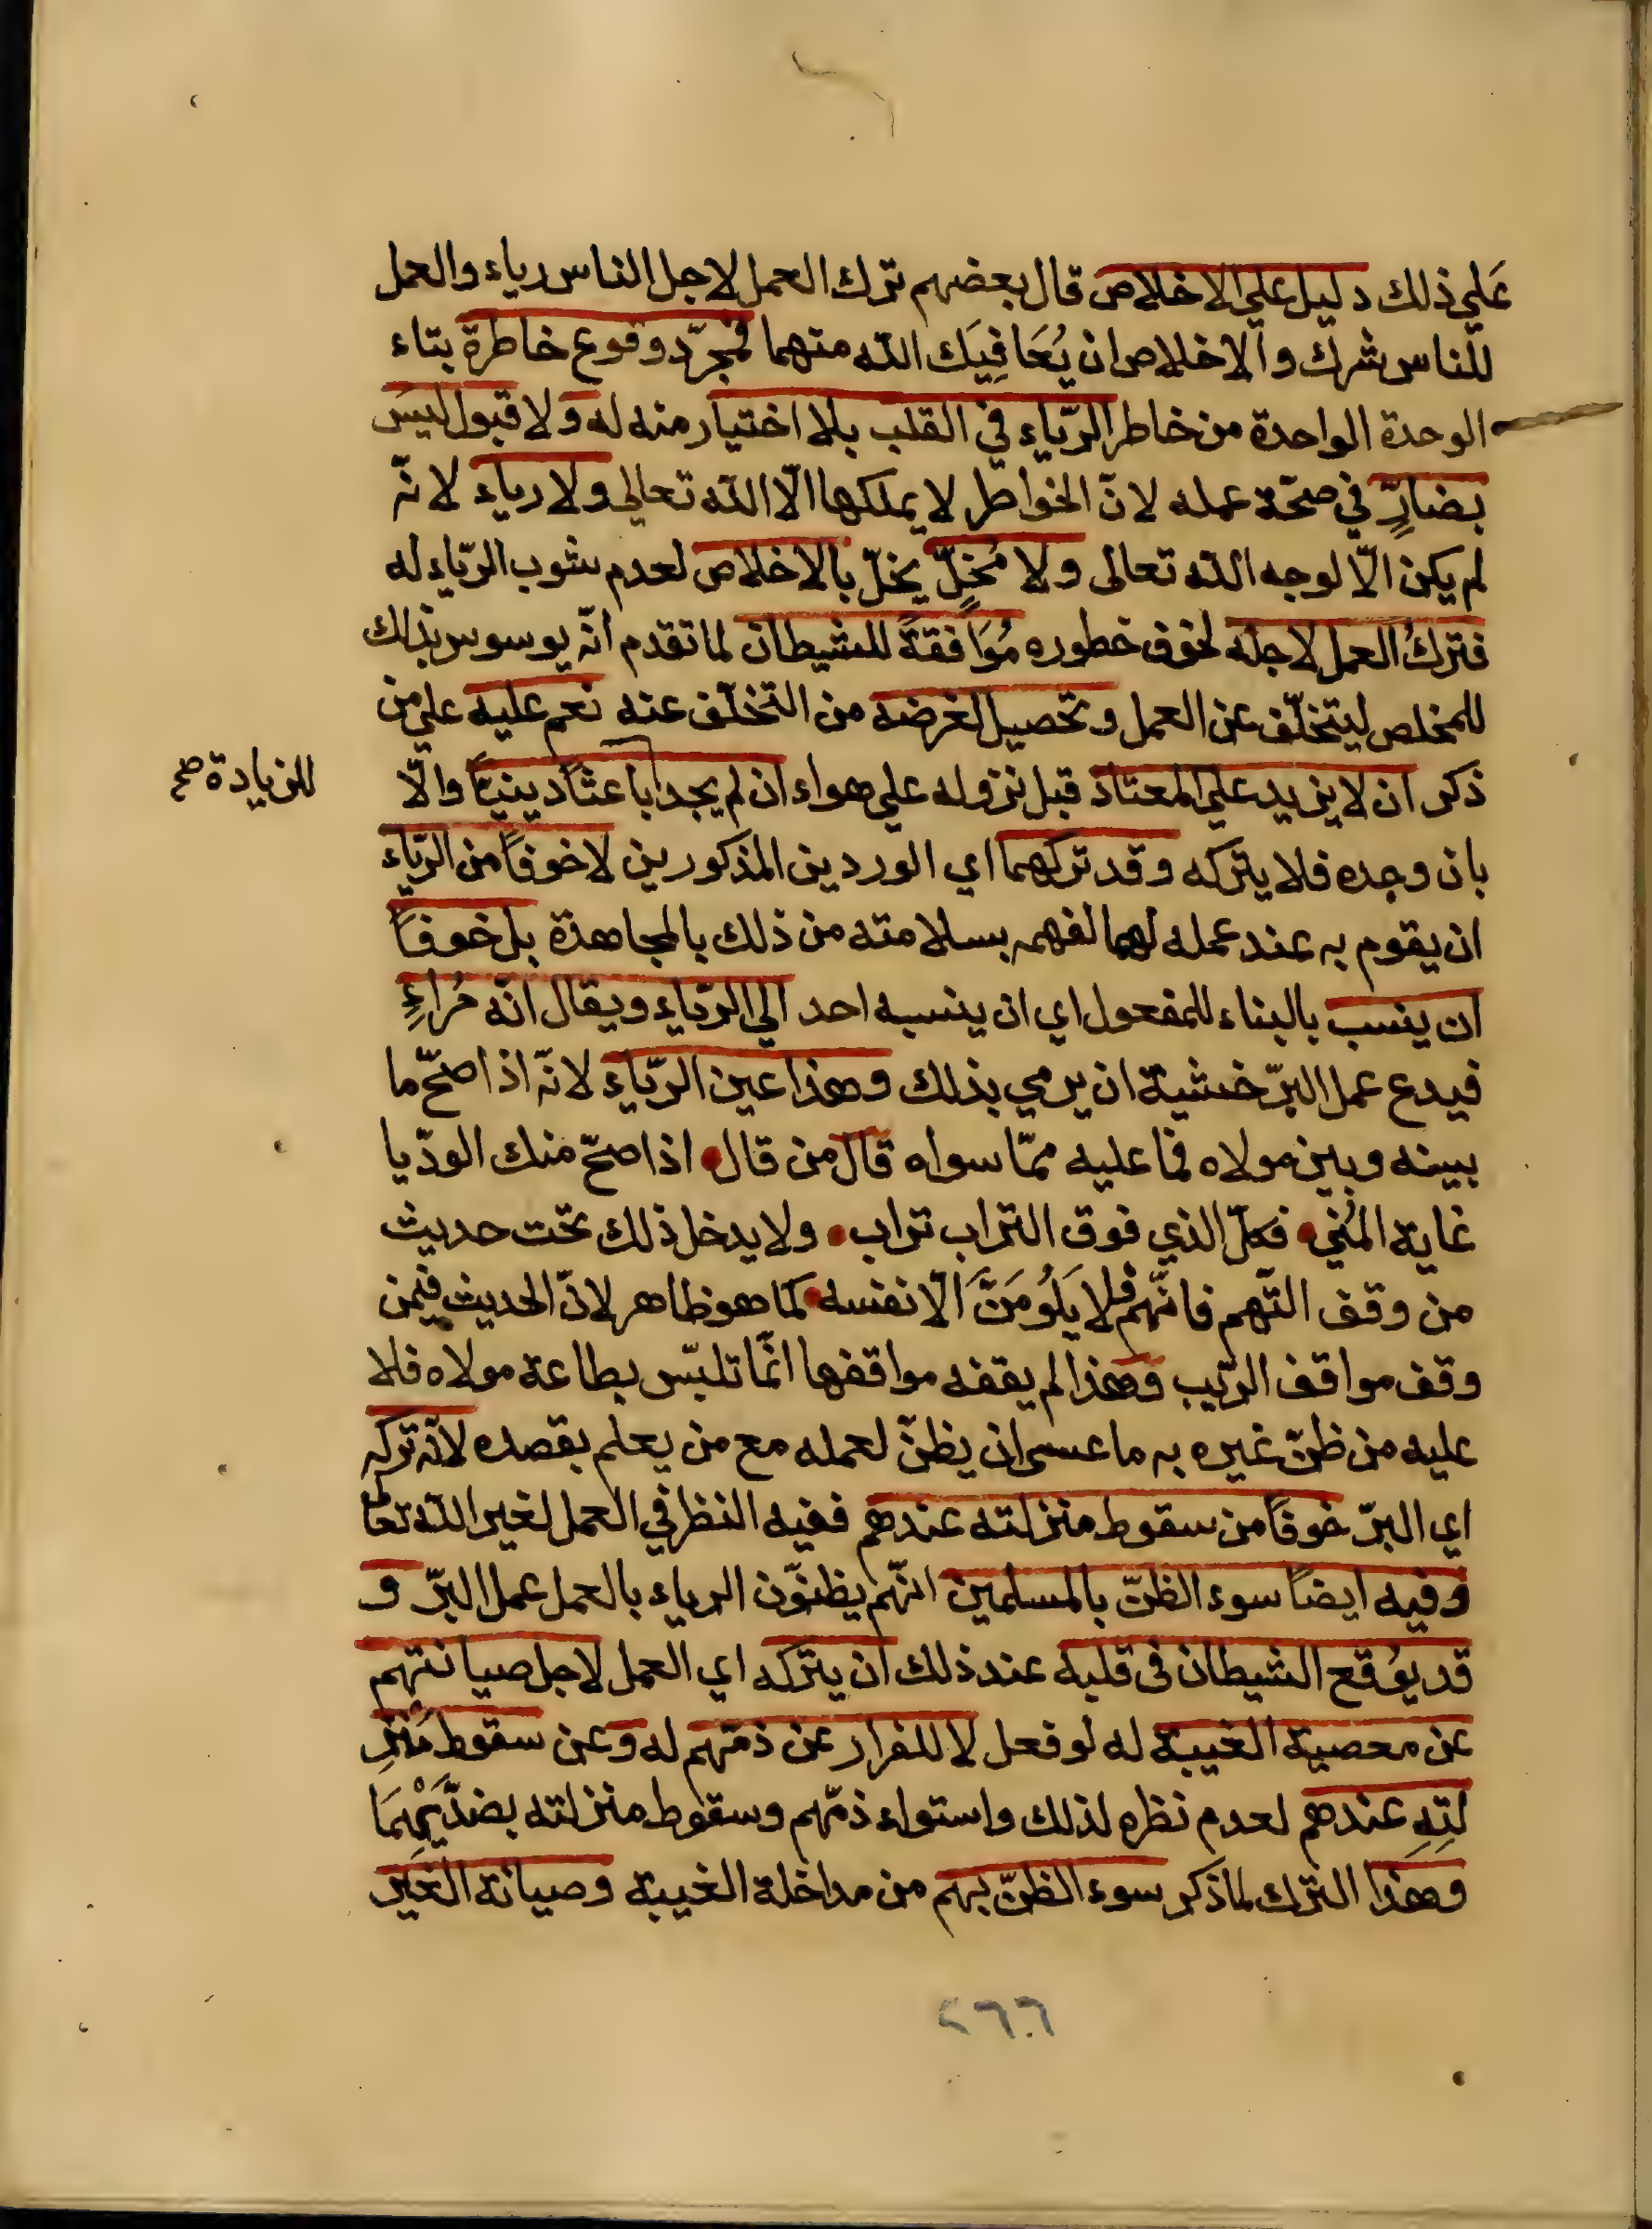 عَلي ذلك دليل علي الاخلاص قال بعضهم ترك العمل لاجل الناس رياء والعمل
للناس شرك والاخلاص ان يُعَافِيَك الله منهما فمجرّد وقوع خاطرة بتاء
الوحدة الواحدة من خاطر الرّياء في القلب بلا اختيار منه له ولا قبول ليس
بضارٍّ في صحّة عمله لانّ الخواطر لا يملكها الّا الله تعالي ولا رياء لانّه
لم يكن الّا لوجه الله تعالى ولا مُخِلٍّ يخلّ بالاخلاص لعدم شوب الرّياء له
فتركُ العمل لاجله لخوف خطوره مُوَافقةً للشيطان لما تقدم انّه يوسوس بذلك
للمخلص ليتخلّف عن العمل وتحصيل لغرضه من التخلّف عنه نعم عليه علي من
ذكر ان لا يزيد علي المعتاد قبل نزوله علي هواء ان لم يجد باعثاً دينيّاً والّا
للزيادة صح
بان وجده فلا يتركه وقد تركهما اي الوردين المذكورين لا خوفاً من الرّياء
ان يقوم به عند عمله لهما لفهمه بسلامته من ذلك بالمجاهدة بل خوفاً
ان ينسب بالبناء للمفعول اي ان ينسبه احد الي الرّياء ويقال انّه مُراءٍ
فيدع عمل البرّ خشية ان يرمي بذلك وهذا عين الرّياء لانّه اذا صحّ ما
بينه وبين مولاه فما عليه ممّا سواه قال من قال اذا صحّ منك الودّ يا
غاية المُني فكلّ الذي فوق التراب تراب ولا يدخل ذلك تحت حديث
من وقف التّهم فانّهم فلا يَلُومَنَّ الّا نفسه كما هو ظاهر لانّ الحديث فيمن
وقف مواقف الرّيب وهذا لم يقفه مواقفها انّما تلبّس بطاعة مولاه فلا
عليه من ظنّ غيره به ما عسى ان يظنّ لعمله مع من يعلم بقصده لانّه تركه
اي البرّ خوفاً من سقوط منزلته عندهم ففيه النظر في العمل لغير الله تعالى
وفيه ايضاً سوء الظنّ بالمسلمين انّهم يظنّون الرياء بالعمل عمل البرّ و
قد يوُقع الشيطان فى قلبه عند ذلك ان يتركه اي العمل لاجل صيانتهم
عن معصية الغيبة له لو فعل لا للفرار عن ذمّهم له وعن سقوط مَنْزِ
لتِهِ عندهم لعدم نظره لذلك واستواء ذمّهم وسقوط منزلته بضدّيْهِمَا
وهذا الترك لما ذكر سوء الظنّ بهم من مداخلة الغيبة وصيانة الغير
٢٦٦